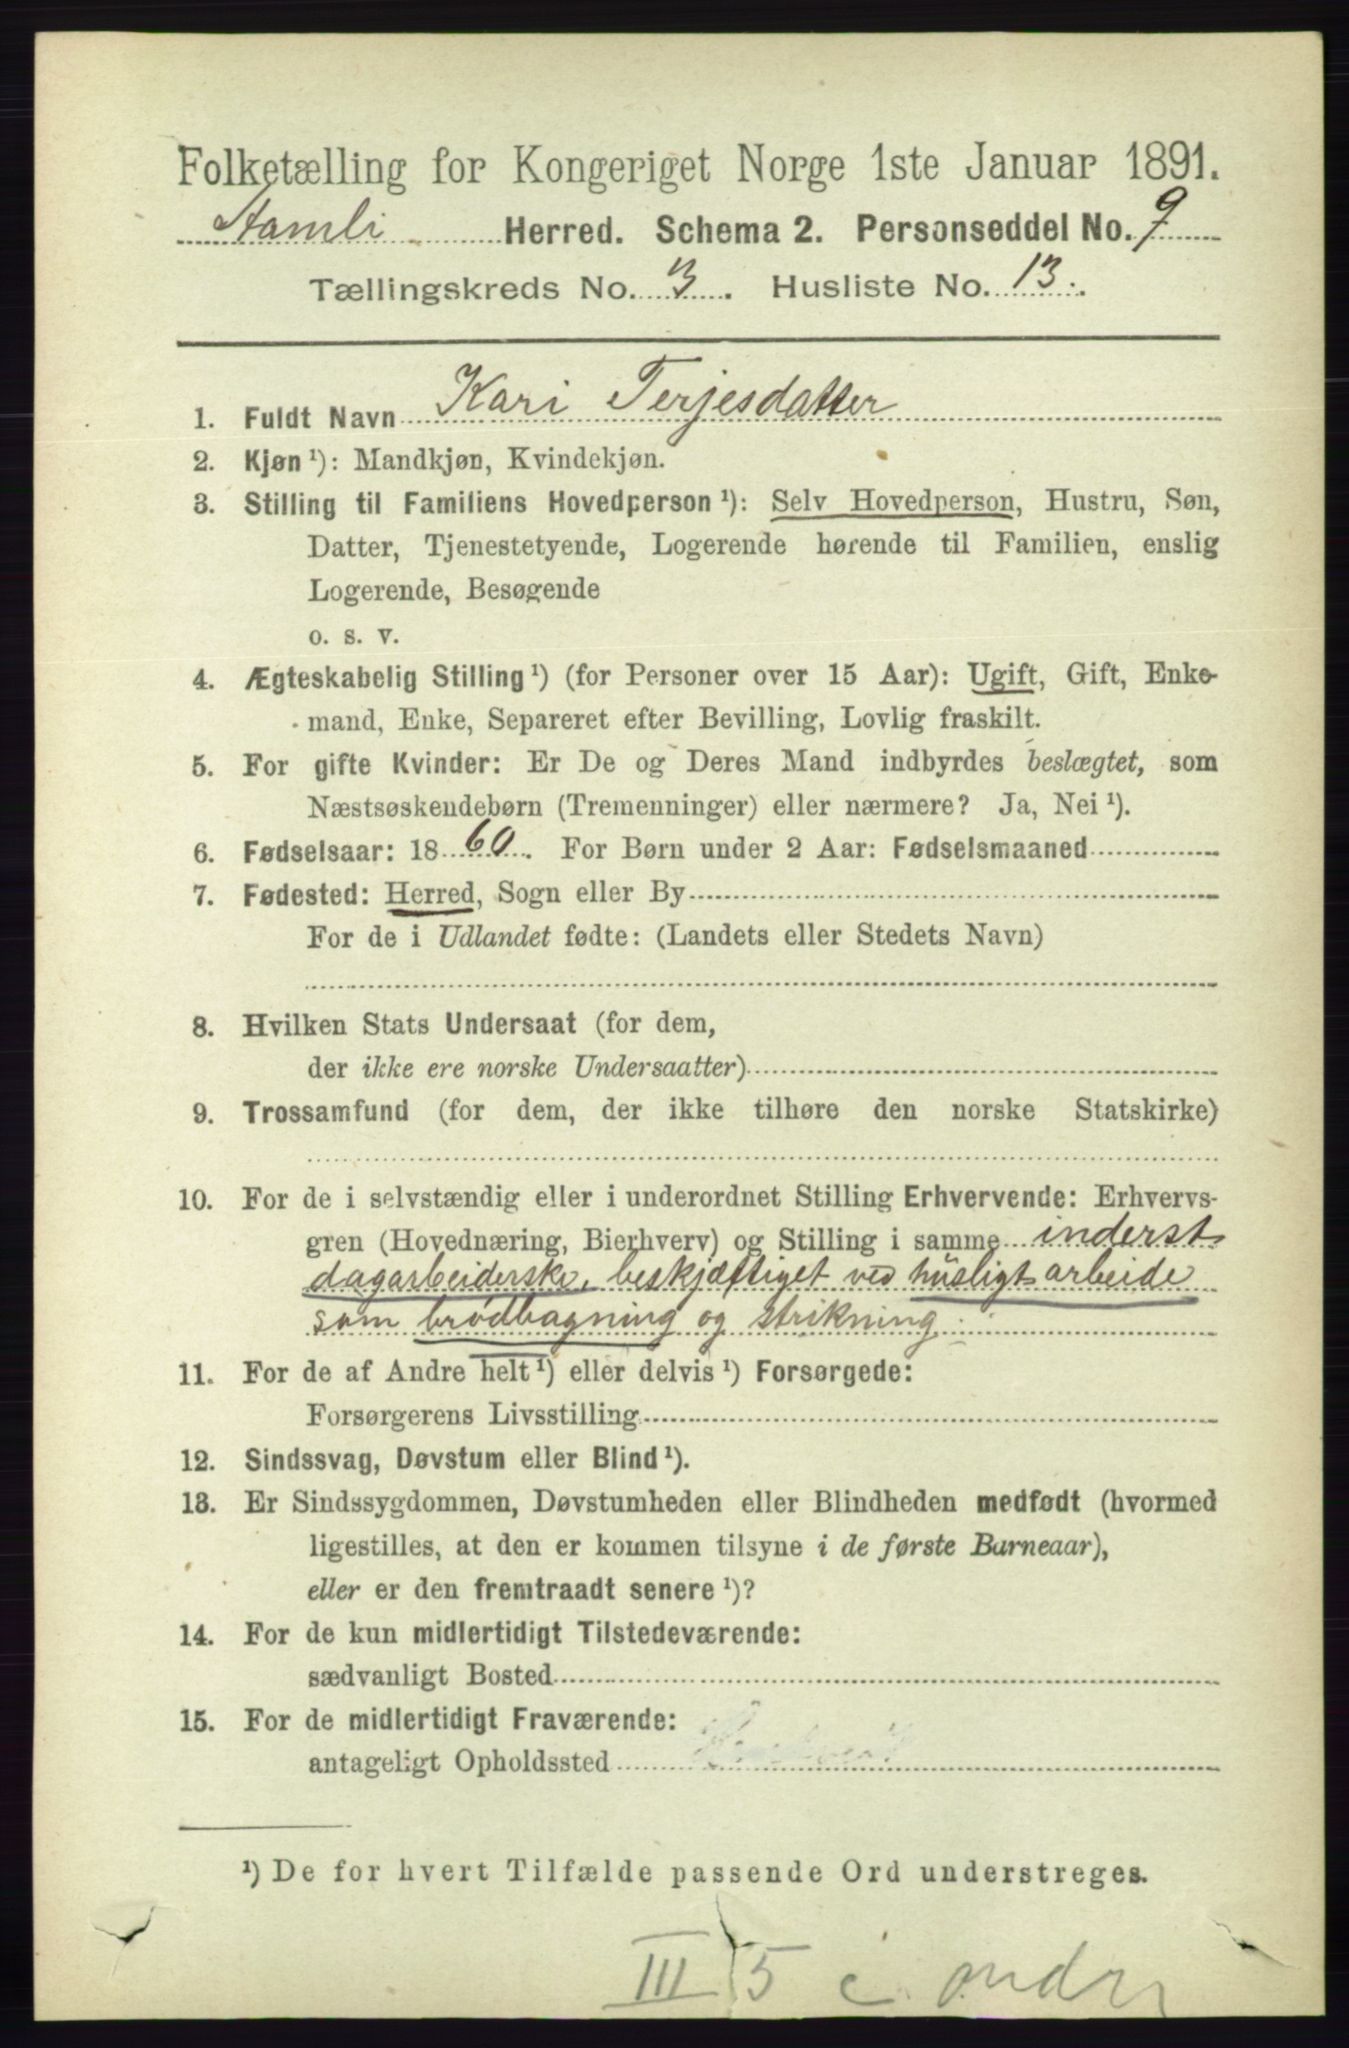 Folketælling for Kongeriget Norge 1ste Januar 1891.
Hamli Herred. Schema 2. Personseddel No. 9
Tællingskreds No. 3. Husliste No. 13.
1. Fuldt Navn Kari Terjesdatter
2. Kjøn ¹): Mandkjøn, Kvindekjøn.
3. Stilling til Familiens Hovedperson ¹): Selv Hovedperson, Hustru, Søn,
Datter, Tjenestetyende, Logerende hørende til Familien, enslig
Logerende, Besøgende
o. s. v.
4. Ægteskabelig Stilling ¹) (for Personer over 15 Aar): Ugift, Gift, Enke-
mand, Enke, Separeret efter Bevilling, Lovlig fraskilt.
5. For gifte Kvinder: Er De og Deres Mand indbyrdes beslægtet, som
Næstsøskendebørn (Tremenninger) eller nærmere? Ja, Nei ¹).
6. Fødselsaar: 1860. For Børn under 2 Aar: Fødselsmaaned
7. Fødested: Herred, Sogn eller By
For de i Udlandet fødte: (Landets eller Stedets Navn)
8. Hvilken Stats Undersaat (for dem,
der ikke ere norske Undersaatter)
9. Trossamfund (for dem, der ikke tilhøre den norske Statskirke)
10. For de i selvstændig eller i underordnet Stilling Erhvervende: Erhvervs-
gren (Hovednæring, Bierhverv) og Stilling i samme inderst
dagarbeiderske, beskjæftiget ved husligt arbeide
som brødbagning og strikning.
11. For de af Andre helt ¹) eller delvis ¹) Forsørgede:
Forsørgerens Livsstilling
12. Sindssvag, Døvstum eller Blind ¹).
13. Er Sindssygdommen, Døvstumheden eller Blindheden medfødt (hvormed
ligestilles, at den er kommen tilsyne i de første Barneaar),
eller er den fremtraadt senere ¹)?
14. For de kun midlertidigt Tilstedeværende:
sædvanligt Bosted
15. For de midlertidigt Fraværende:
antageligt Opholdssted
¹) De for hvert Tilfælde passende Ord understreges.
III 5 c andr